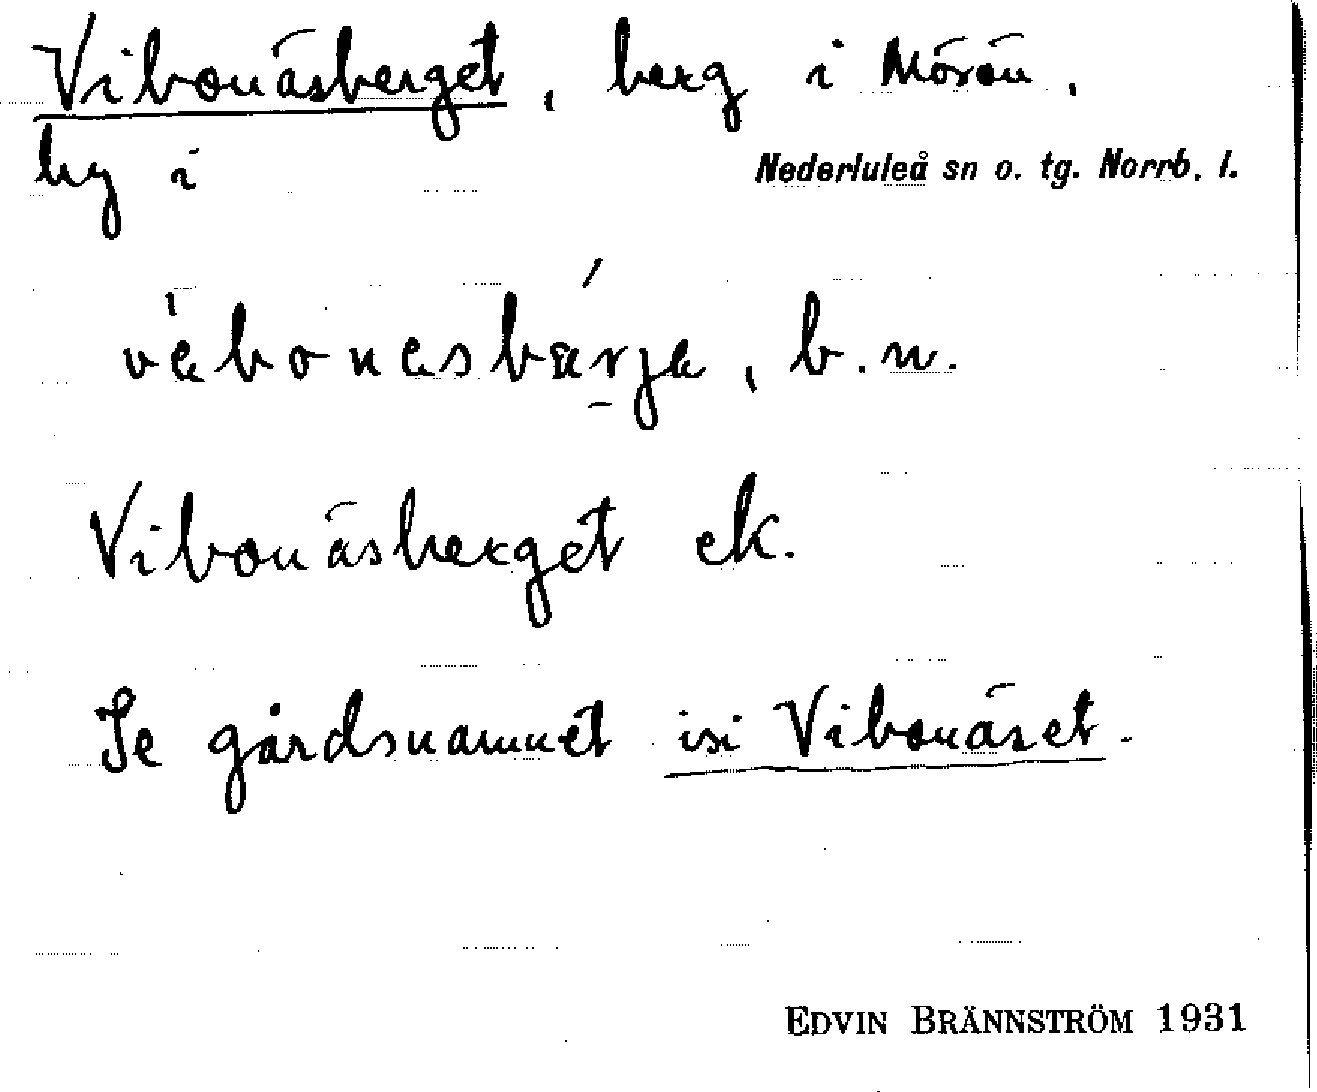 Vibonäsberget, berg i Mörön,
by i Nederluleå sn o. tg. Norrb. l.
b. n.
Vibonäsberget ek.
Se gårdsnamnet Vibonäset.
EDVIN BRÄNNSTRÖM 1931